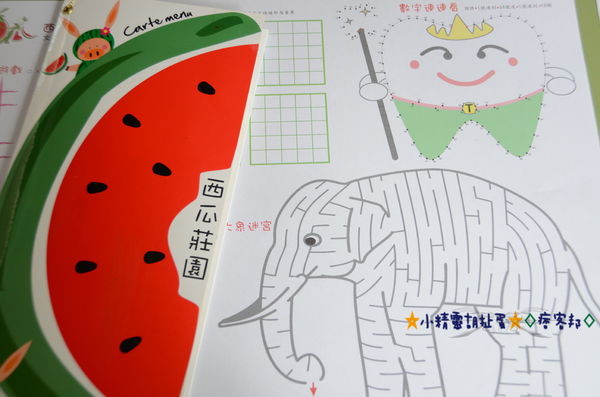 Carte menu
西瓜莊園
數字連連看
大象迷宮
T
小精靈胡扯蛋
痞客邦